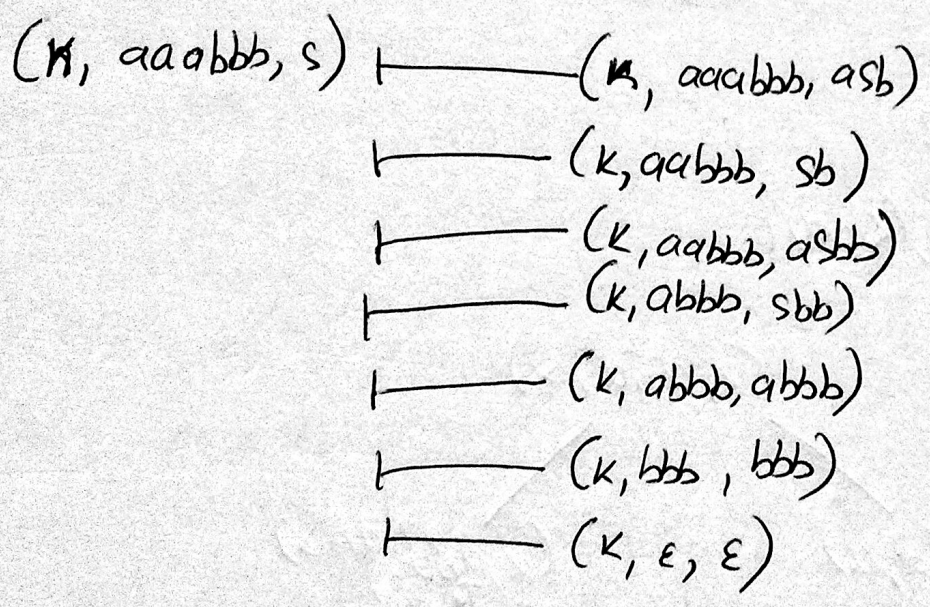 (K, aaabbb, s) ⊢ (K, aaabbb, asb)
⊢ (K, aabbb, sb)
⊢ (K, aabbb, asbb)
⊢ (K, abbb, sbb)
⊢ (K, abbb, abbb)
⊢ (K, bbb, bbb)
⊢ (K, ε, ε)